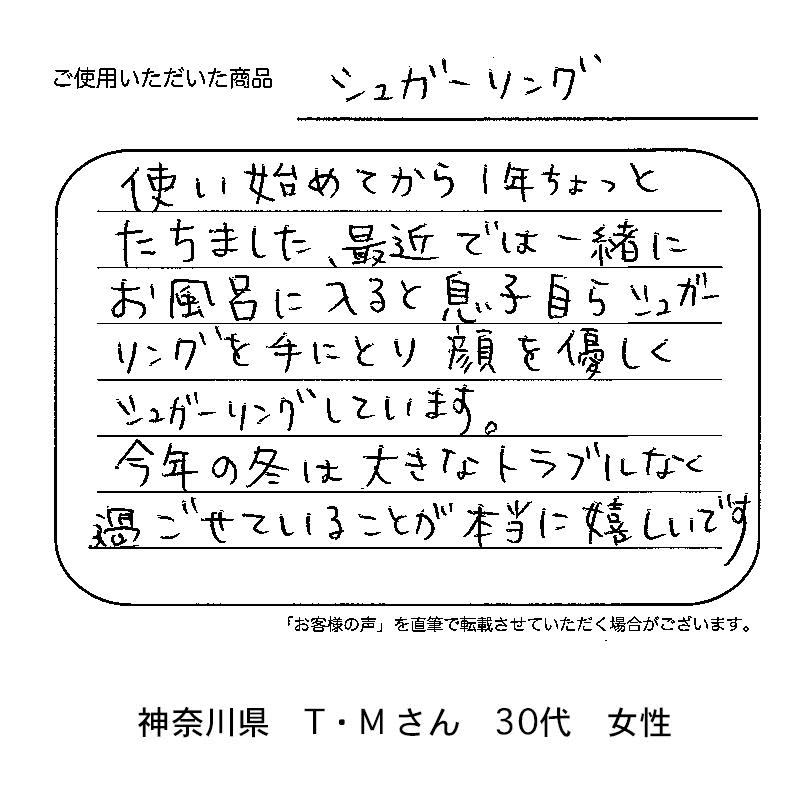 ご使用いただいた商品 シュガーリング
使い始めてから1年ちょっと
たちました、最近では一緒に
お風呂に入ると息子自らシュガー
リングを手にとり顔を優しく
シュガーリングしています。
今年の冬は大きなトラブルなく
過ごせていることが本当に嬉しいです
「お客様の声」を直筆で転載させていただく場合がございます。
神奈川県 T・Mさん 30代 女性